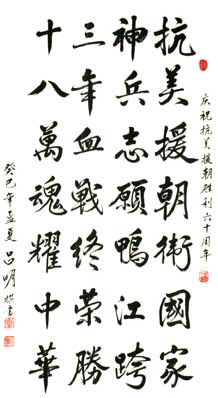 庆祝抗美援朝胜利六十周年
抗美援朝衛國家
神兵志願鴨江跨
三年血戰終榮勝
十八萬魂耀中華
癸巳年孟夏吕明